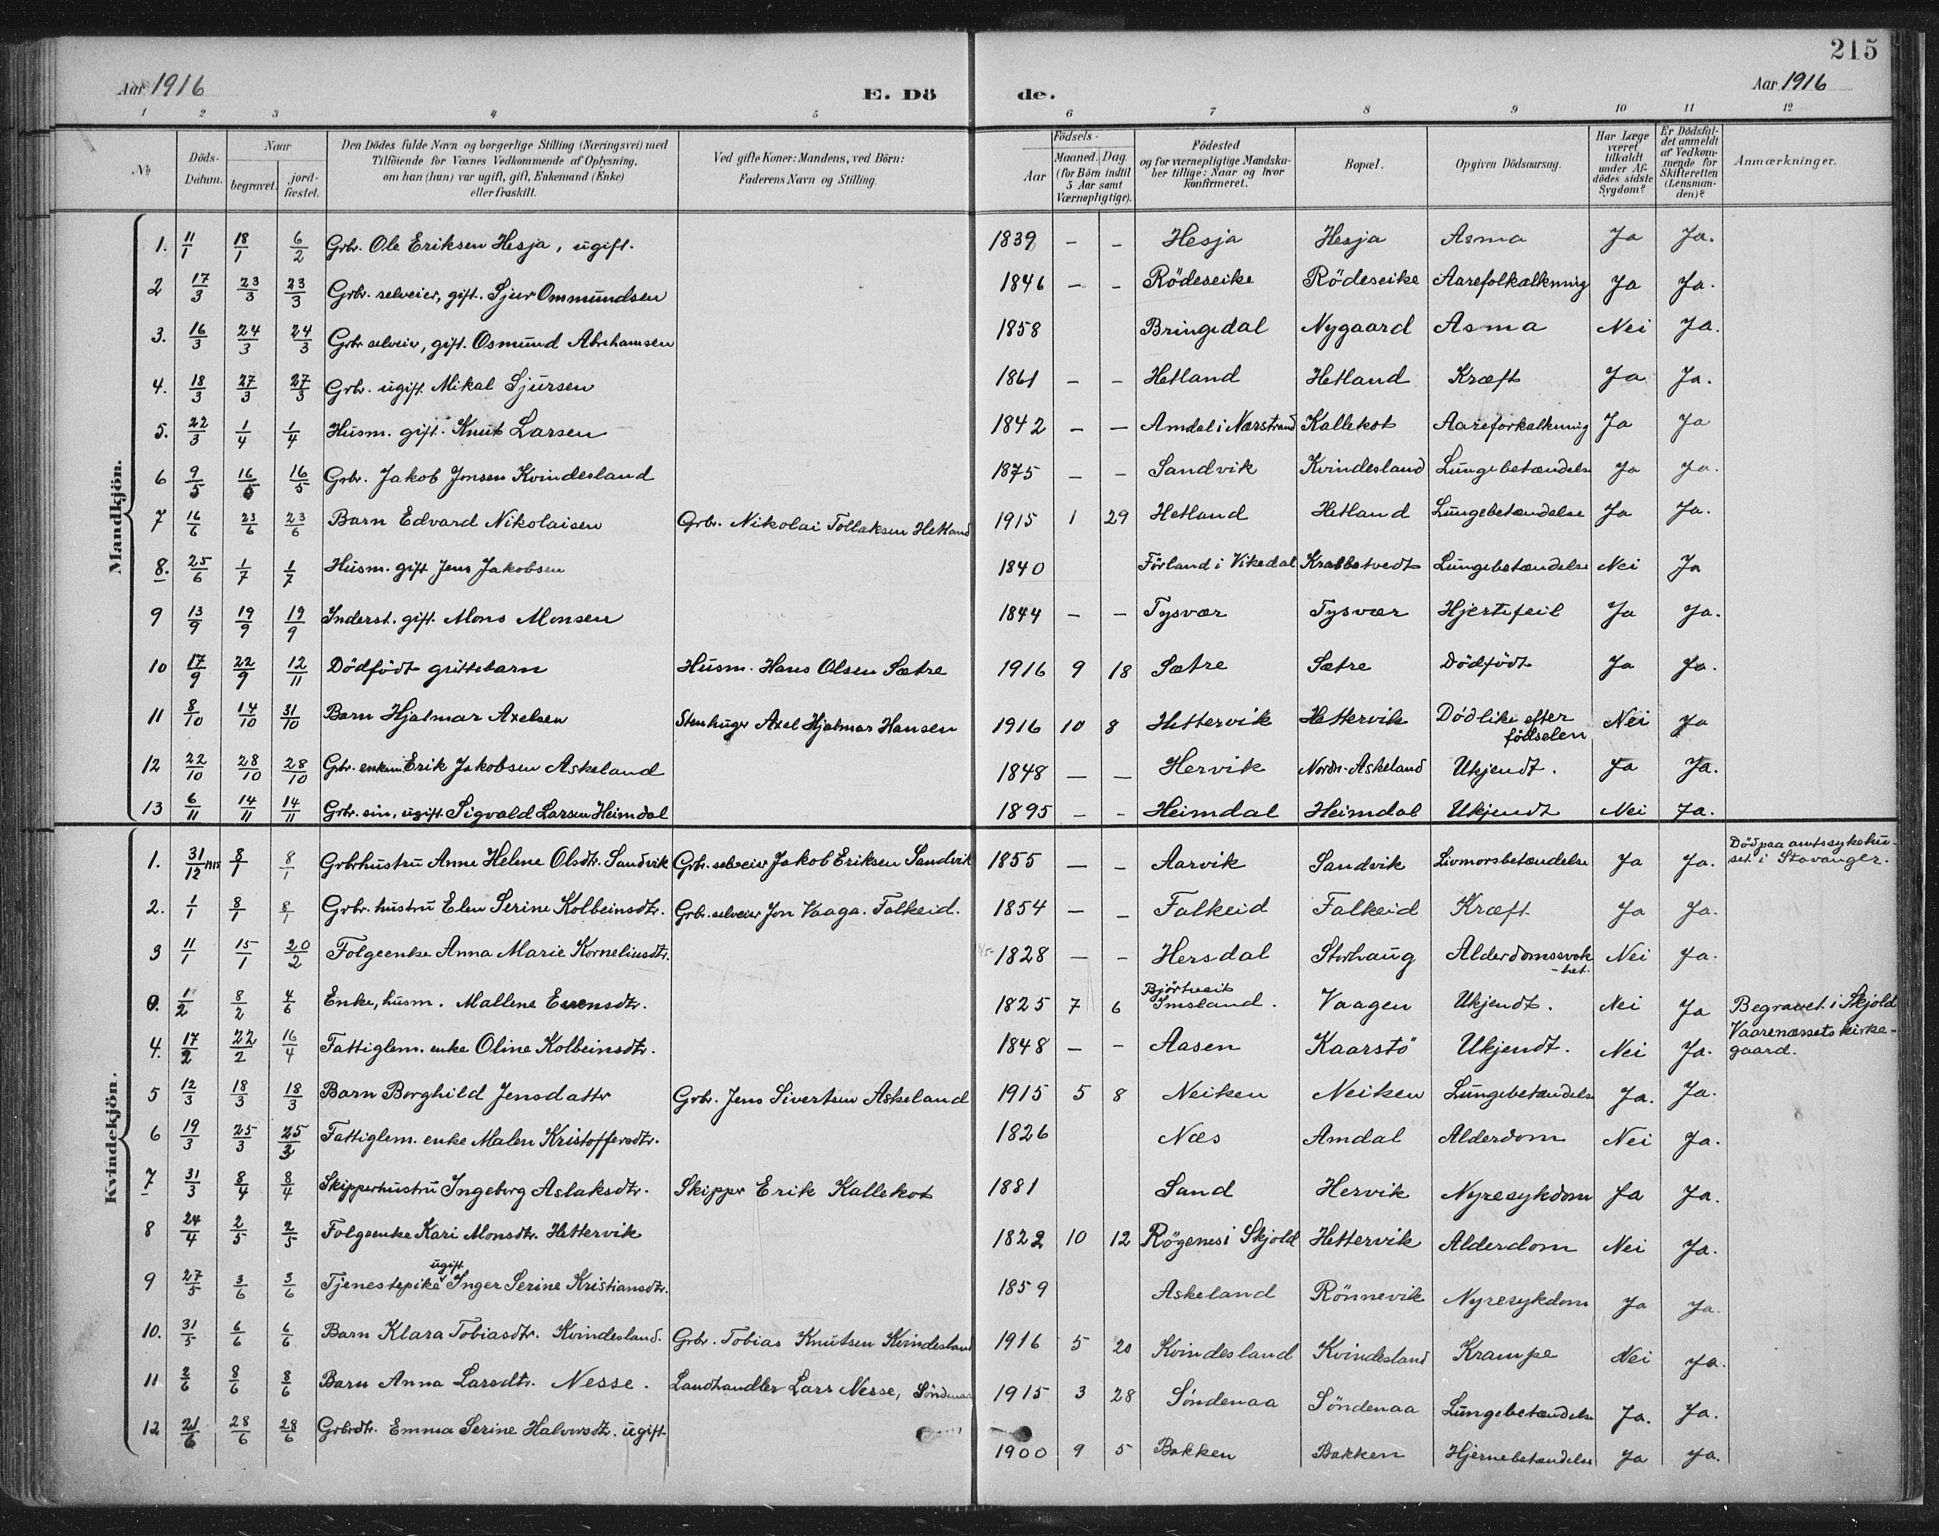 215
Aar 1916 E. Dö de. Aar 1916
1 2 3 4 5 6 7 8 9 10 11 12
No Döds-Datum. Naar begravet. jord-fæstet. Den Dödes fulde Navn og borgerlige Stilling (Næringsvei) med Tilföiende for Voxnes Vedkommende af Oplysning, om han (hun) var ugift, gift, Enkemand (Enke) eller fraskilt. Ved gifte Koner: Mandens, ved Börn: Faderens Navn og Stilling. Födsels- Aar Maaned. Dag (for Börn indtil 5 Aar samt Værnepligtige). Födested og for værnepligtige Mandska-ber tillige: Naar og hvor konfirmeret. Bopæl. Opgiven Dödsaarsag. Har Læge været tilkaldt under Af-dödes sidste Sygdom? Er Dödsfal-det anmeldt af Vedkom-mende for Skifteretten (Lensman-den)? Anmærkninger.
Mandkjön.
1. 11/1 18/1 6/2 Grbr. Ole Eriksen Hesja, ugift. 1839 – – Hesja Hesja Asma Ja Ja.
2 17/3 23/3 23/3 Grbr. selveier, gift. Sjur Ommundsen 1846 – – Rödeseike Rödeseike Aarefolkalkning Ja Ja.
3. 16/3 24/3 24/3 Grbr selveier, gift. Osmund Abrahamsen 1858 Bringedal Nygaard Asma Nei Ja.
4. 18/3 27/3 27/3 Grbr. ugift. Mikal Sjursen 1861 – – Hetland Hetland Kræft Ja Ja.
5. 22/3 1/4 1/4 Husm. gift. Knut Larsen 1842 – – Amdal i Nærstrand Kallekot Aareforkalkning Ja Ja
6 9/5 16/5 16/5 Grbr. Jakob Jonsen Kvindesland 1875 – – Sandvik Kvindesland Lungebetændelse Ja Ja.
7 16/6 23/6 23/6 Barn Edvard Nikolaisen Grbr. Nikolai Tollaksen Hetland 1915 1 29 Hetland Hetland Lungebetændelse Ja Ja.
8. 25/6 1/7 1/7 Husm. gift Jens Jakobsen 1840 Förland i Vikedal Krabbetvedt Lungebetændelse Nei Ja
9 13/9 19/9 19/9 Inderst. gift. Mons Monsen 1844 – – Tysvær Tysvær Hjertefeil Ja Ja.
10 17/9 22/9 12/11 Dödfödt guttebarn Husm. Hans Olsen Sætre 1916 9 18 Sætre Sætre Dödfödt Ja Ja.
11 8/10 14/10 31/10 Barn Hjalmar Axelsen Stenhuger Axel Hjalmar Hansen 1916 10 8 Hettervik Hettervik Död like efter födselen Nei Ja
12 22/10 28/10 28/10 Grbr. enkem Erik Jakobsen Askeland 1848 – – Hervik Nordr. Askeland Ukjendt. Ja Ja.
13 6/11 14/11 14/11 Grbr. sön, ugift. Sigvald Larsen Heimdal 1895 – – Heimdal Heimdal Ukjendt Nei Ja.
Kvindekjön.
1. 31/12 1915 8/1 8/1 Grbrhustru Anne Helene Olsdtr. Sandvik Grbr. selveier Jakob Eriksen Sandvik 1855 – – Aarvik Sandvik Livmorsbetændelse Ja Ja. Död paa amtssykehu-set i Stavanger.
2. 1/1 8/1 8/1 Grbr. hustru Elen Serine Kolbeinsdtr. Grbr. selveier Jon Vaaga. Falkeid. 1854 – – Falkeid Falkeid Kræft Ja Ja.
3 11/1 15/1 20/2 Folgeenke Anna Marie Korneliusdtr. 1828 – – Hersdal Storhaug Alderdomssvak-het. Nei Ja.
0. 1/2 8/2 4/6 Enke, husm. Mallene Evensdtr. 1825 7 6 Björtveit Imsland. Vaagen Ukjendt. Nei Ja Begravet i Skjold
4. 17/2 22/2 16/4 Fattiglem. enke Oline Kolbeinsdtr. 1848 – – Aasen Kaarstö Ukjendt. Nei Ja. Vaarenæssets kirke-gaard.
5 12/3 18/3 18/3 Barn Borghild Jensdattr Grbr. Jens Sivertsen Askeland 1915 5 8 Neiken Neiken Lungebetændelse Ja. Ja.
6 19/3 25/3 25/3 Fattiglem. enke Malen Kristoffersdtr. 1826 Næs Amdal Alderdom Nei Ja.
7 31/3 8/4 8/4 Skipperhustru Ingeborg Aslaksdtr. Skipper Erik Kallekot 1881 Sand Hervik Nyresykdom Ja Ja.
8 24/4 2/5 2/5 Folgeenke Kari Monsdtr. Hettervik 1822 10 12 Rögenes i Skjold Hettervik Alderdom Nei Ja.
9 27/5 3/6 3/6 Tjenestepike ugift Inger Serine Kristiansdtr. 1859 Askeland Rönnevik Nyresykdom Ja Ja.
10. 31/5 6/6 6/6 Barn Klara Tobiasdtr. Kvindesland. Grbr. Tobias Knutsen Kvindesland 1916 5 20 Kvindesland Kvindesland Krampe Nei Ja.
11 2/6 8/6 8/6 Barn Anna Larsdtr. Nesse. Landhandler Lars Nesse, Söndenaa 1915 3 28 Söndenaa Söndenaa Lungebetændelse Ja. Ja.
12 21/6 28/6 28/6 Grbrdtr. Emma Serine Halvorsdtr. ugift 1900 9 5 Bakken Bakken Hjernebetændelse Ja Ja.